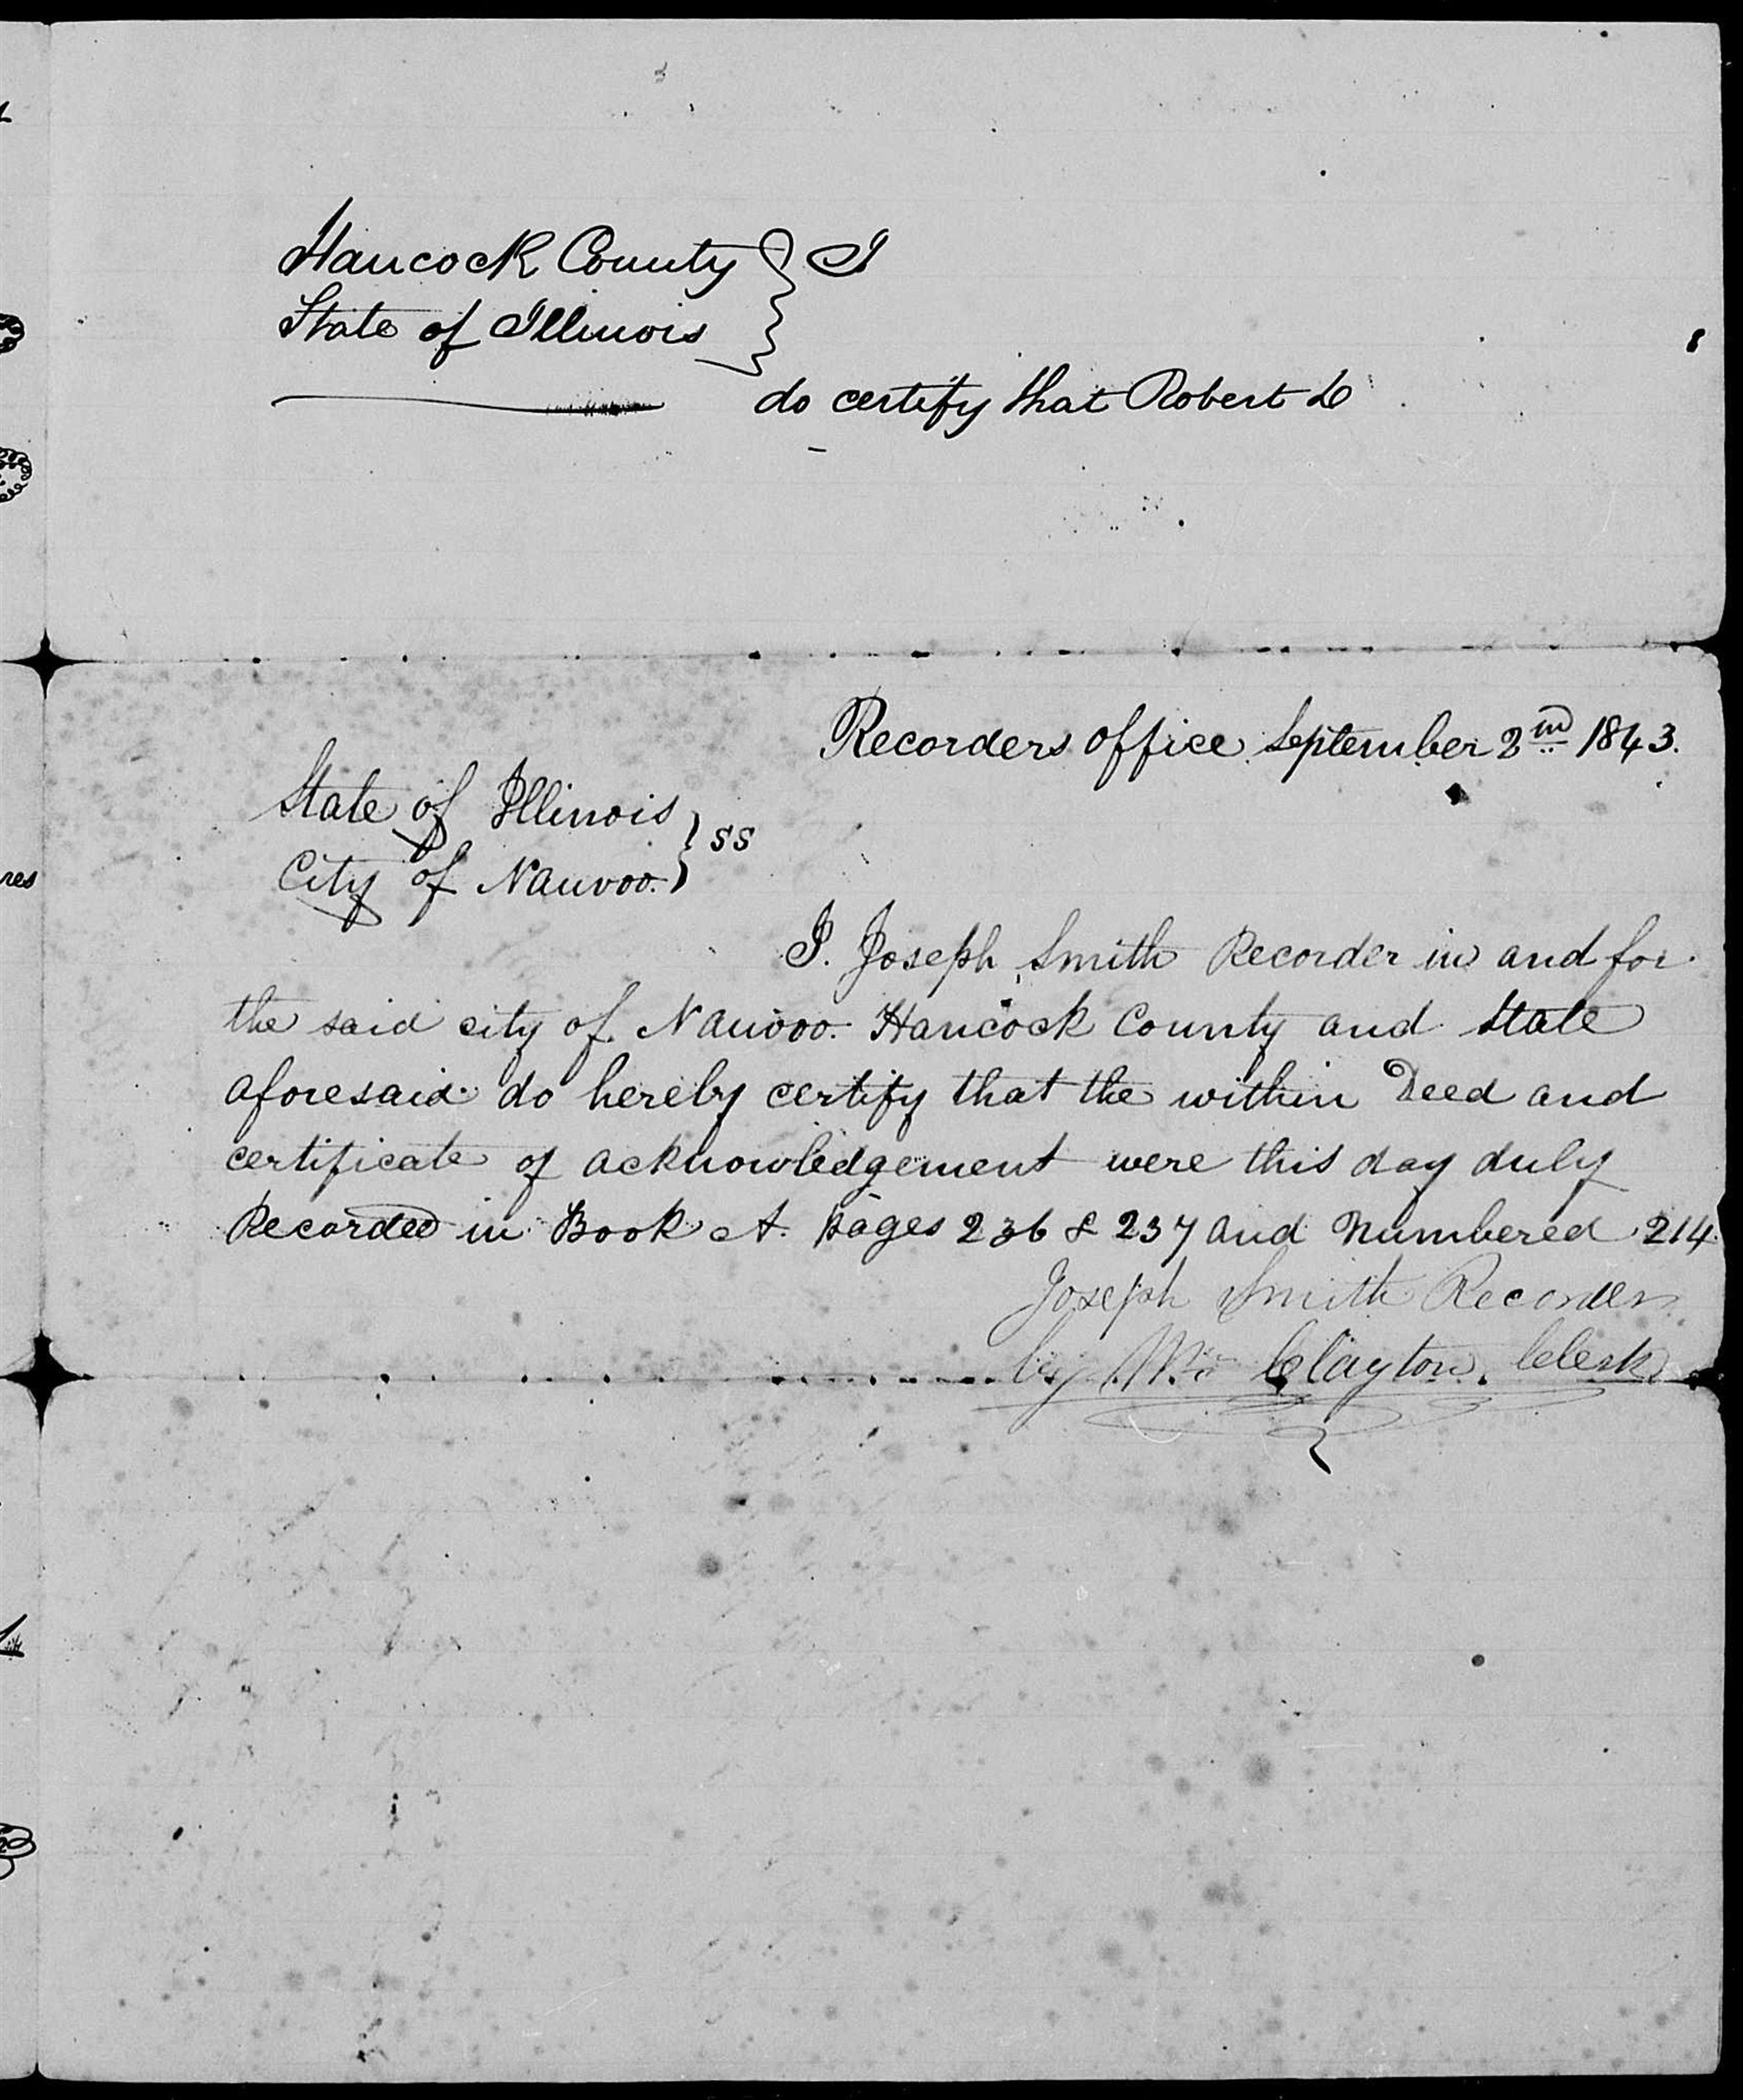 Hancock County } I
State of Illinois }
do certify that Robert D
Recorders office September 2nd 1843.
State of Illinois } SS
City of Nauvoo. }
I. Joseph Smith Recorder in and for
the said city of Nauvoo. Hancock County and State
aforesaid do hereby certify that the within Deed and
certificate of acknowledgement were this day duly
Recorded in Book A. pages 236 & 237 and Numbered 214.
Joseph Smith Recorder
by Wm Clayton, Clerk
res